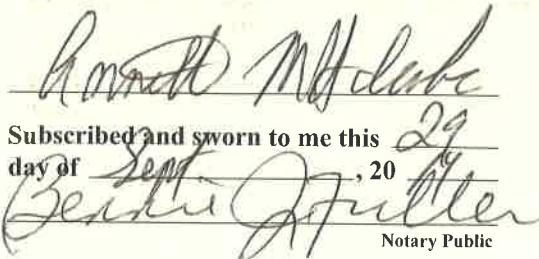 Subscribed and sworn to me this 29
day of Sept. , 20 14
Bennie J Fuller
Notary Public